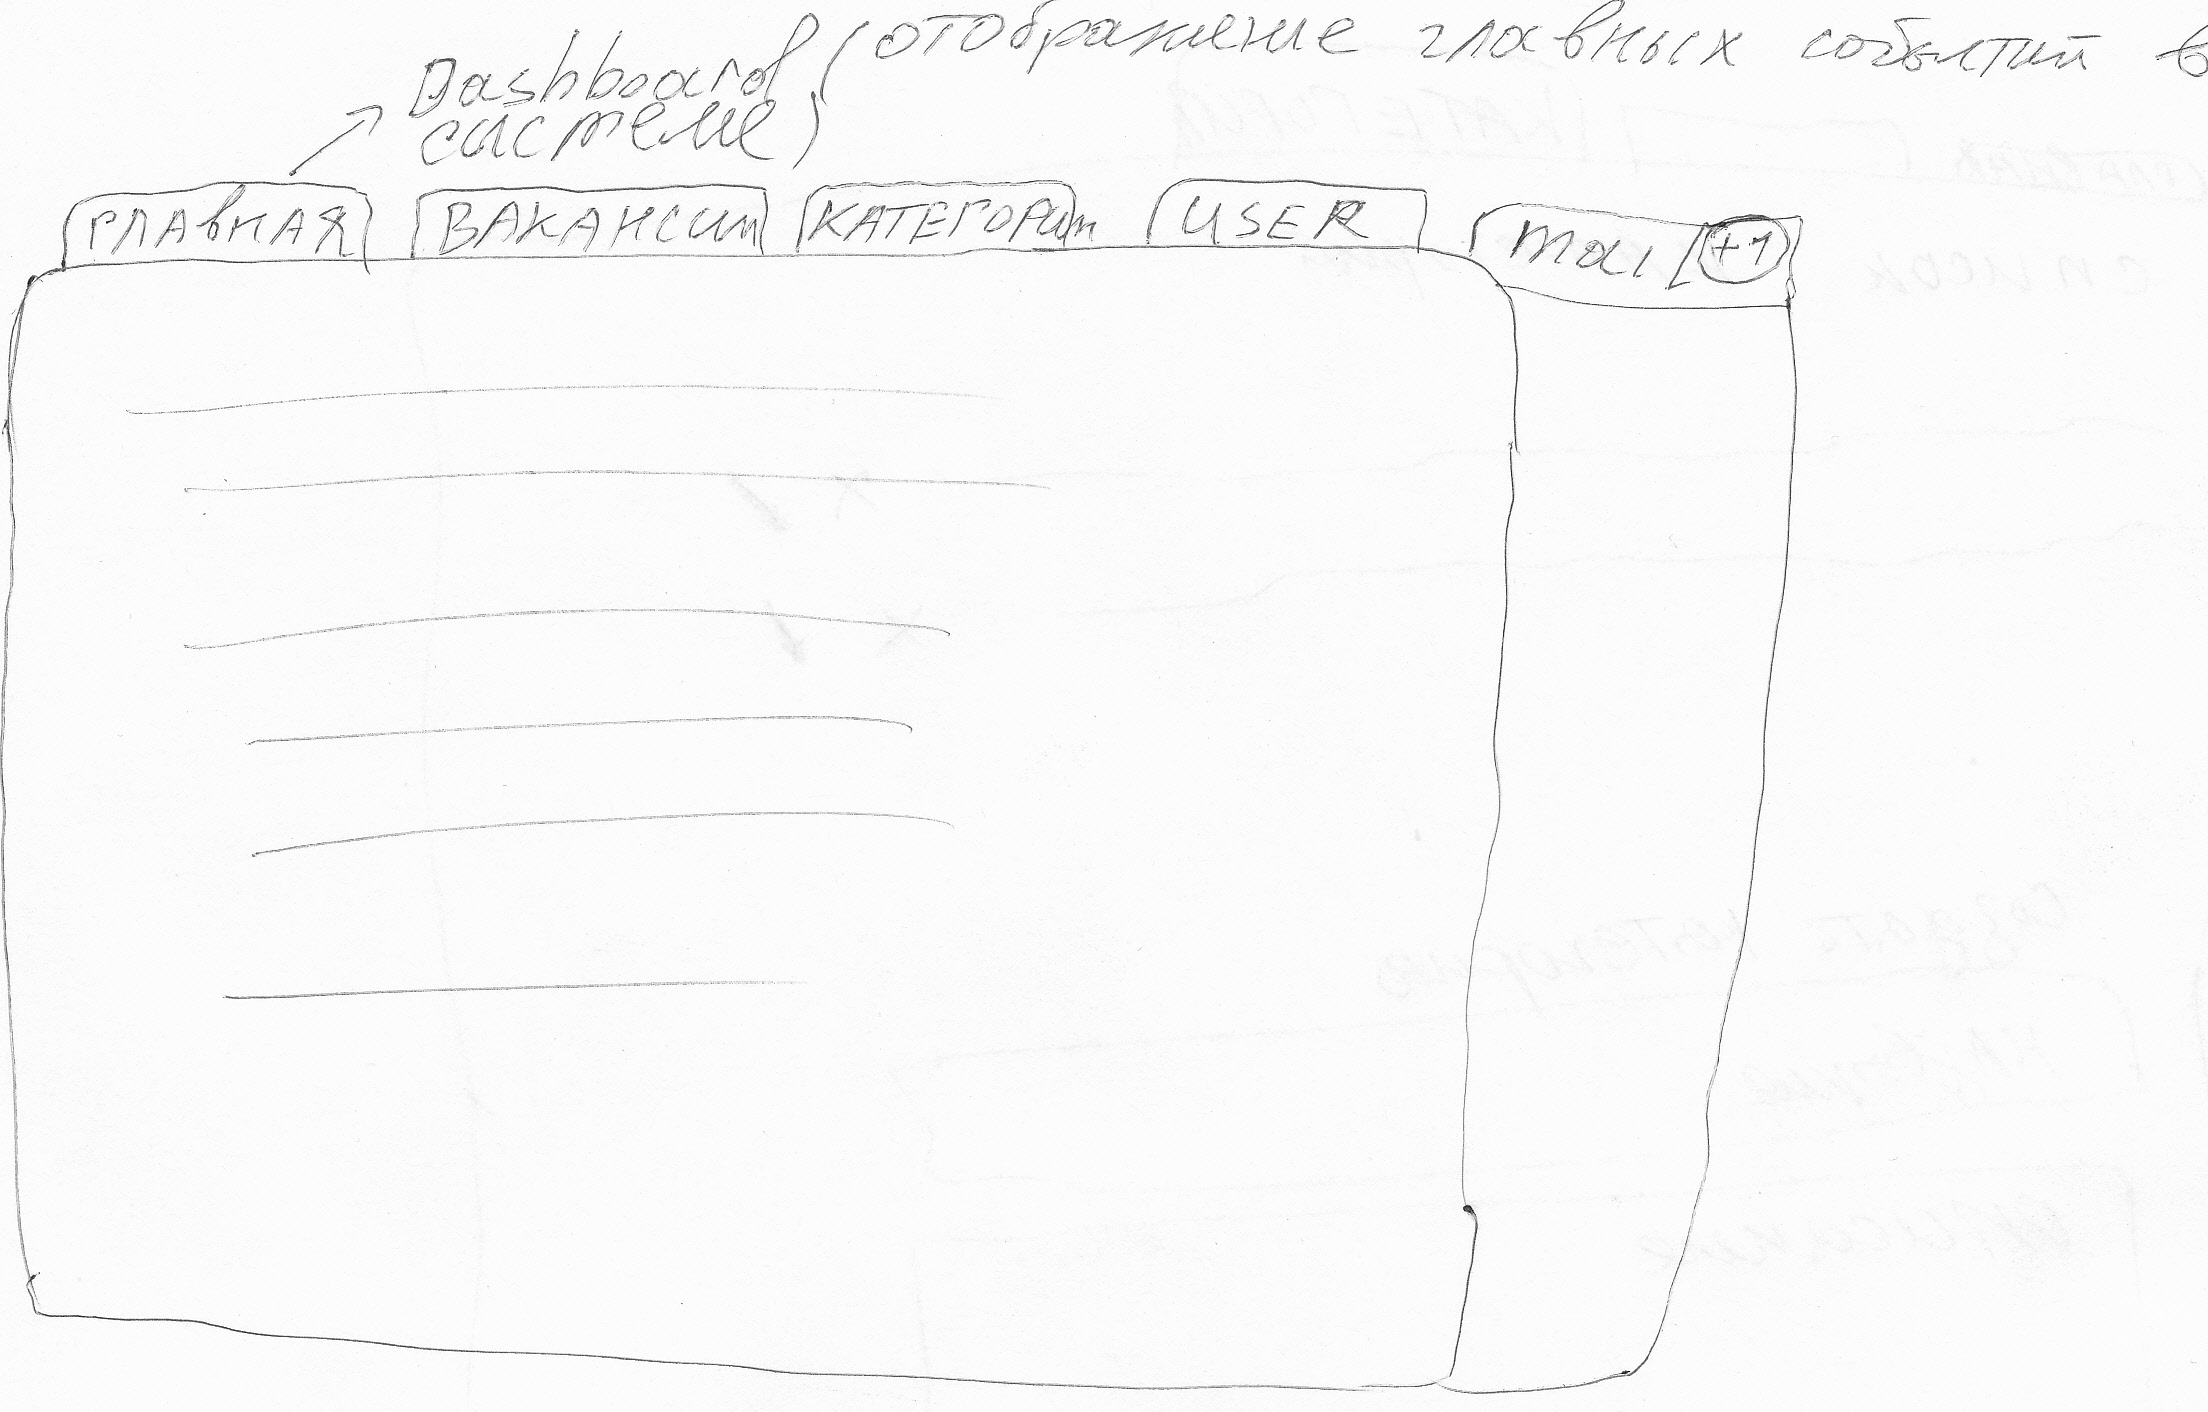 Dashboard (отображение главных событий в
системе)
ГЛАВНАЯ
ВАКАНСИИ
КАТЕГОРИИ
USER
mail +1